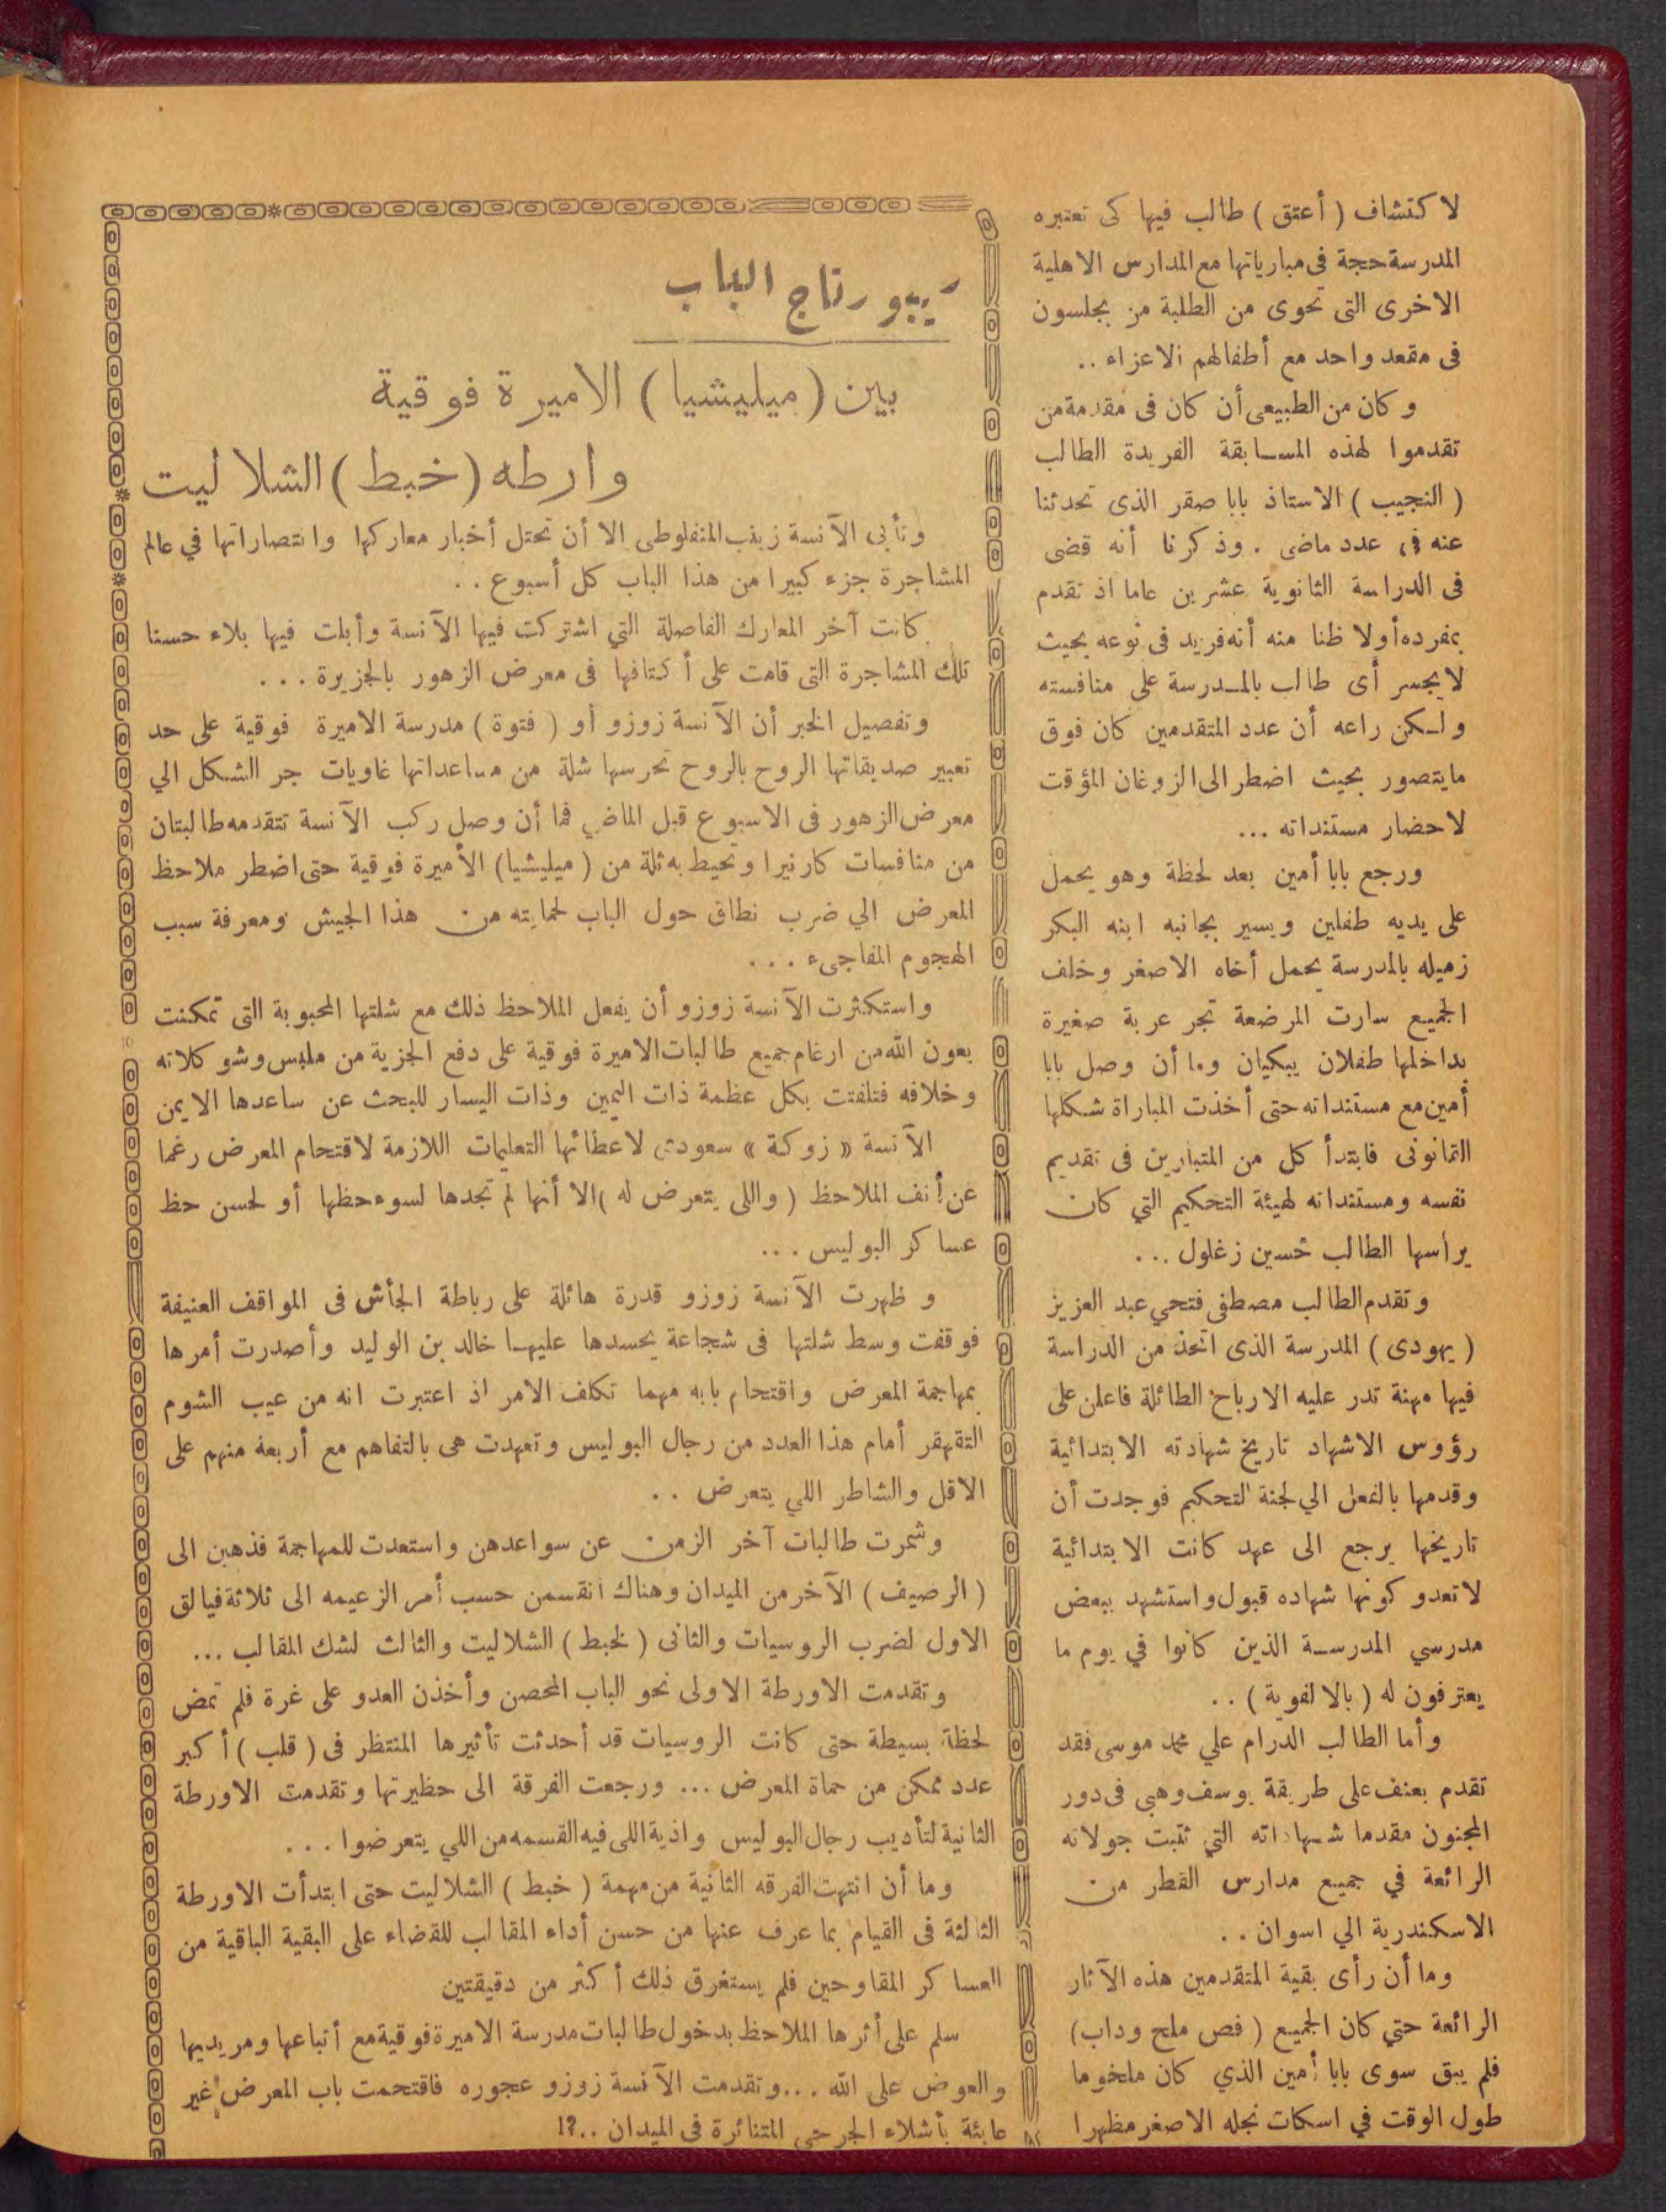 لاكتشاف ( أعتق ) طالب فيها كى تعتبره
المدرسة حجة فى مبارياتها مع المدارس الاهلية
الاخرى التى تحوى من الطلبة من يجلسون
فى مقعد واحد مع أطفالهم الاعزاء ..
وكان من الطبيعى أن كان فى مقدمة من
تقدموا لهذه المسابقة الفريدة الطالب
( النجيب ) الاستاذ بابا صقر الذى تحدثنا
عنه فى عدد ماضى . وذكرنا أنه قضى
فى الدراسة الثانوية عشرين عاما اذ تقدم
بمفرده أولا ظنا منه أنه فريد فى نوعه بحيث
لا يجسر أى طالب بالمدرسة على منافسته
ولكن راعه أن عدد المتقدمين كان فوق
مايتصور بحيث اضطر الى الزوغان المؤقت
لاحضار مستنداته ...
ورجع بابا أمين بعد لحظة وهو يحمل
على يديه طفلين ويسير بجانبه ابنه البكر
زميله بالمدرسة يحمل أخاه الاصغر وخلف
الجميع سارت المرضعة تجر عربة صغيرة
بداخلها طفلان يبكيان وما أن وصل بابا
أمين مع مستنداته حتى أخذت المباراة شكلها
القانونى فابتدأ كل من المتبارين فى تقديم
نفسه ومستنداته لهيئة التحكيم التي كان
يرأسها الطالب حسين زغلول ...
وتقدم الطالب مصطفى فتحي عبد العزيز
( يهودى ) المدرسة الذى اتخذ من الدراسة
فيها مهنة تدر عليه الارباح الطائلة فاعلن على
رؤوس الاشهاد تاريخ شهادته الابتدائية
وقدمها بالفعل الي لجنة التحكيم فوجدت أن
تاريخها يرجع الى عهد كانت الابتدائية
لاتعدو كونها شهاده قبول واستشهد ببعض
مدرسي المدرسة الذين كانوا في يوم ما
يعترفون له ( بالالفوية ) ..
وأما الطالب الدرام علي محمد موسى فقد
تقدم بعنف على طريقة يوسف وهبى فى دور
المجنون مقدما شهاداته التي تثبت جولاته
الرائعة في جميع مدارس القطر من
الاسكندرية الي اسوان ..
وما أن رأى بقية المتقدمين هذه الآثار
الرائعة حتي كان الجميع ( فص ملح وداب )
فلم يبق سوى بابا أمين الذي كان ملخوما
طول الوقت في اسكات نجله الاصغر مظهرا
ريبورتاج الباب
بين ( ميليشيا ) الاميرة فوقية
وارطه ( خبط ) الشلاليت
وتأبى الآنسة زينب المنفلوطى الا أن تحتل أخبار معاركها وانتصاراتها في عالم
المشاجرة جزء كبيرا من هذا الباب كل أسبوع . .
كانت آخر المعارك الفاصلة التي اشتركت فيها الآنسة وأبلت فيها بلاء حسنا
تلك المشاجرة التى قامت على أكتافها فى معرض الزهور بالجزيرة ...
وتفصيل الخبر أن الآنسة زوزو أو ( فتوة ) مدرسة الاميرة فوقية على حد
تعبير صديقاتها الروح بالروح تحرسها شلة من مساعداتها غاويات جر الشكل الي
معرض الزهور فى الاسبوع قبل الماضي فما أن وصل ركب الآنسة تتقدمه طالبتان
من منافسات كارنيرا وتحيط به ثلة من ( ميليشيا ) الأميرة فوقية حتى اضطر ملاحظ
المعرض الي ضرب نطاق حول الباب لحمايته من هذا الجيش ومعرفة سبب
الهجوم المفاجىء ...
واستكثرت الآنسة زوزو أن يفعل الملاحظ ذلك مع شلتها المحبوبة التى تمكنت
بعون الله من ارغام جميع طالبات الاميرة فوقية على دفع الجزية من ملبس وشوكلاته
وخلافه فتلفتت بكل عظمة ذات اليمين وذات اليسار للبحث عن ساعدها الايمن
الآنسة « زوكة » سعودى لاعطائها التعليمات اللازمة لاقتحام المعرض رغما
عن أنف الملاحظ ( واللى يتعرض له ) الا أنها لم تجدها لسوء حظها أو لحسن حظ
عساكر البوليس ...
وظهرت الآنسة زوزو قدرة هائلة على رباطة الجأش فى المواقف العنيفة
فوقفت وسط شلتها فى شجاعة يحسدها عليها خالد بن الوليد وأصدرت أمرها
بمهاجمة المعرض واقتحام بابه مهما تكلف الامر اذ اعتبرت انه من عيب الشوم
التقهقر أمام هذا العدد من رجال البوليس وتعهدت هى بالتفاهم مع أربعة منهم على
الاقل والشاطر اللي يتعرض ..
وشمرت طالبات آخر الزمن عن سواعدهن واستعدت للمهاجمة فذهبن الى
( الرصيف ) الآخر من الميدان وهناك انقسمن حسب أمر الزعيمه الى ثلاثة فيالق
الاول لضرب الروسيات والثانى ( لخبط ) الشلاليت والثالث لشك المقالب ...
وتقدمت الاورطة الاولى نحو الباب المحصن وأخذن العدو على غرة فلم تمض
لحظة بسيطة حتى كانت الروسيات قد أحدثت تأثيرها المنتظر فى ( قلب ) أكبر
عدد ممكن من حماة المعرض ... ورجعت الفرقة الى حظيرتها وتقدمت الاورطة
الثانية لتأديب رجال البوليس واذية اللى فيه القسمه من اللي يتعرضوا ...
وما أن انتهت الفرقه الثانية من مهمة ( خبط ) الشلاليت حتى ابتدأت الاورطة
الثالثة فى القيام بما عرف عنها من حسن أداء المقالب للقضاء على البقية الباقية من
العساكر المقاوحين فلم يستغرق ذلك أكثر من دقيقتين
سلم على أثرها الملاحظ بدخول طالبات مدرسة الاميرة فوقية مع أتباعها ومريديها
والعوض على الله ... وتقدمت الآنسة زوزو عجوره فاقتحمت باب المعرض غير
عابئة بأشلاء الجرحى المتناثرة فى الميدان ..؟!